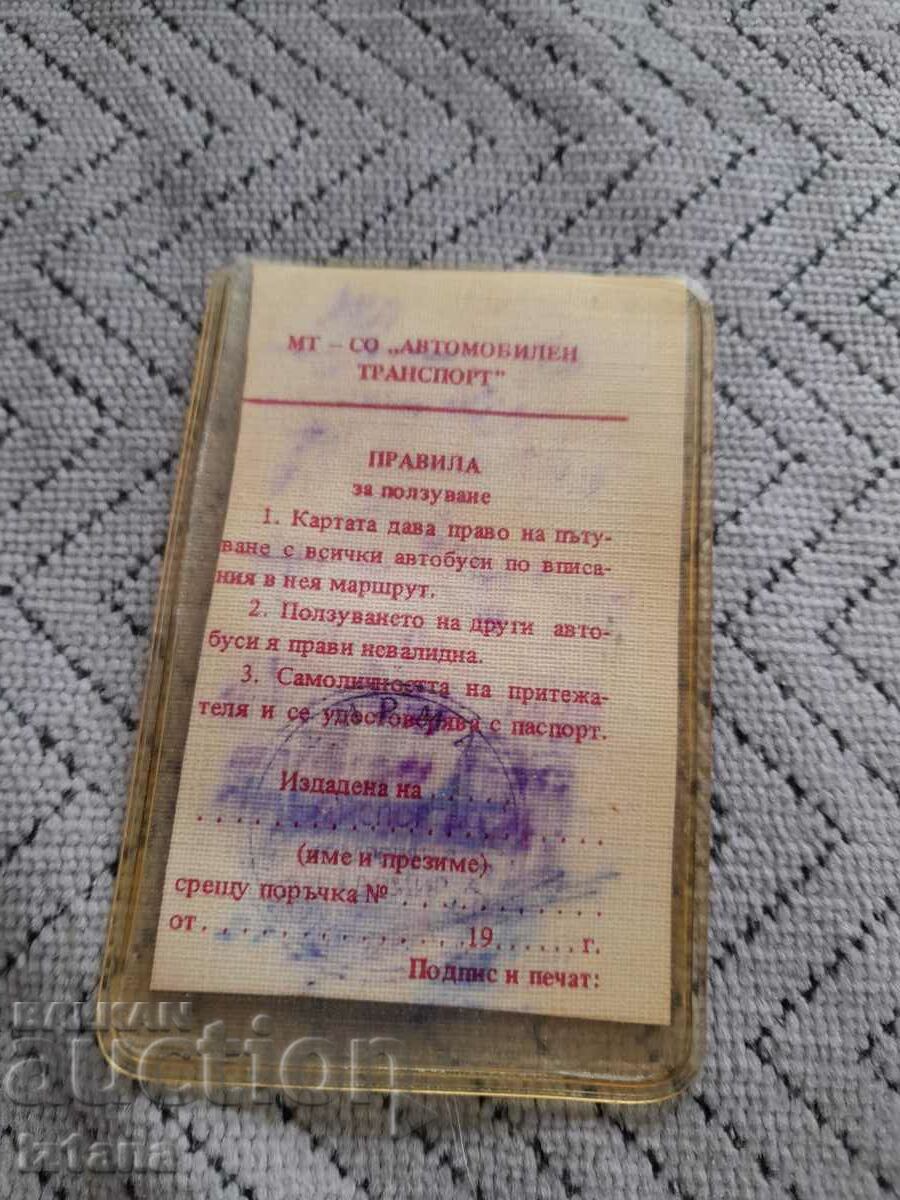 МТ – СО „АВТОМОБИЛЕН
ТРАНСПОРТ"
ПРАВИЛА
за ползуване
1. Картата дава право на пъту-
ване с всички автобуси по вписа-
ния в нея маршрут.
2. Ползуването на други авто-
буси я прави невалидна.
3. Самоличността на притежа-
теля и се удостоверява с паспорт.
Издадена на . . . . .
. . . . . . . . . . . . . . . . . . . .
(име и презиме)
срещу поръчка № . . . . . . . . . . .
от. . . . . . . . . . . . . .19. . . . . . г.
Подпис и печат:
BALKAN
auction
iztana